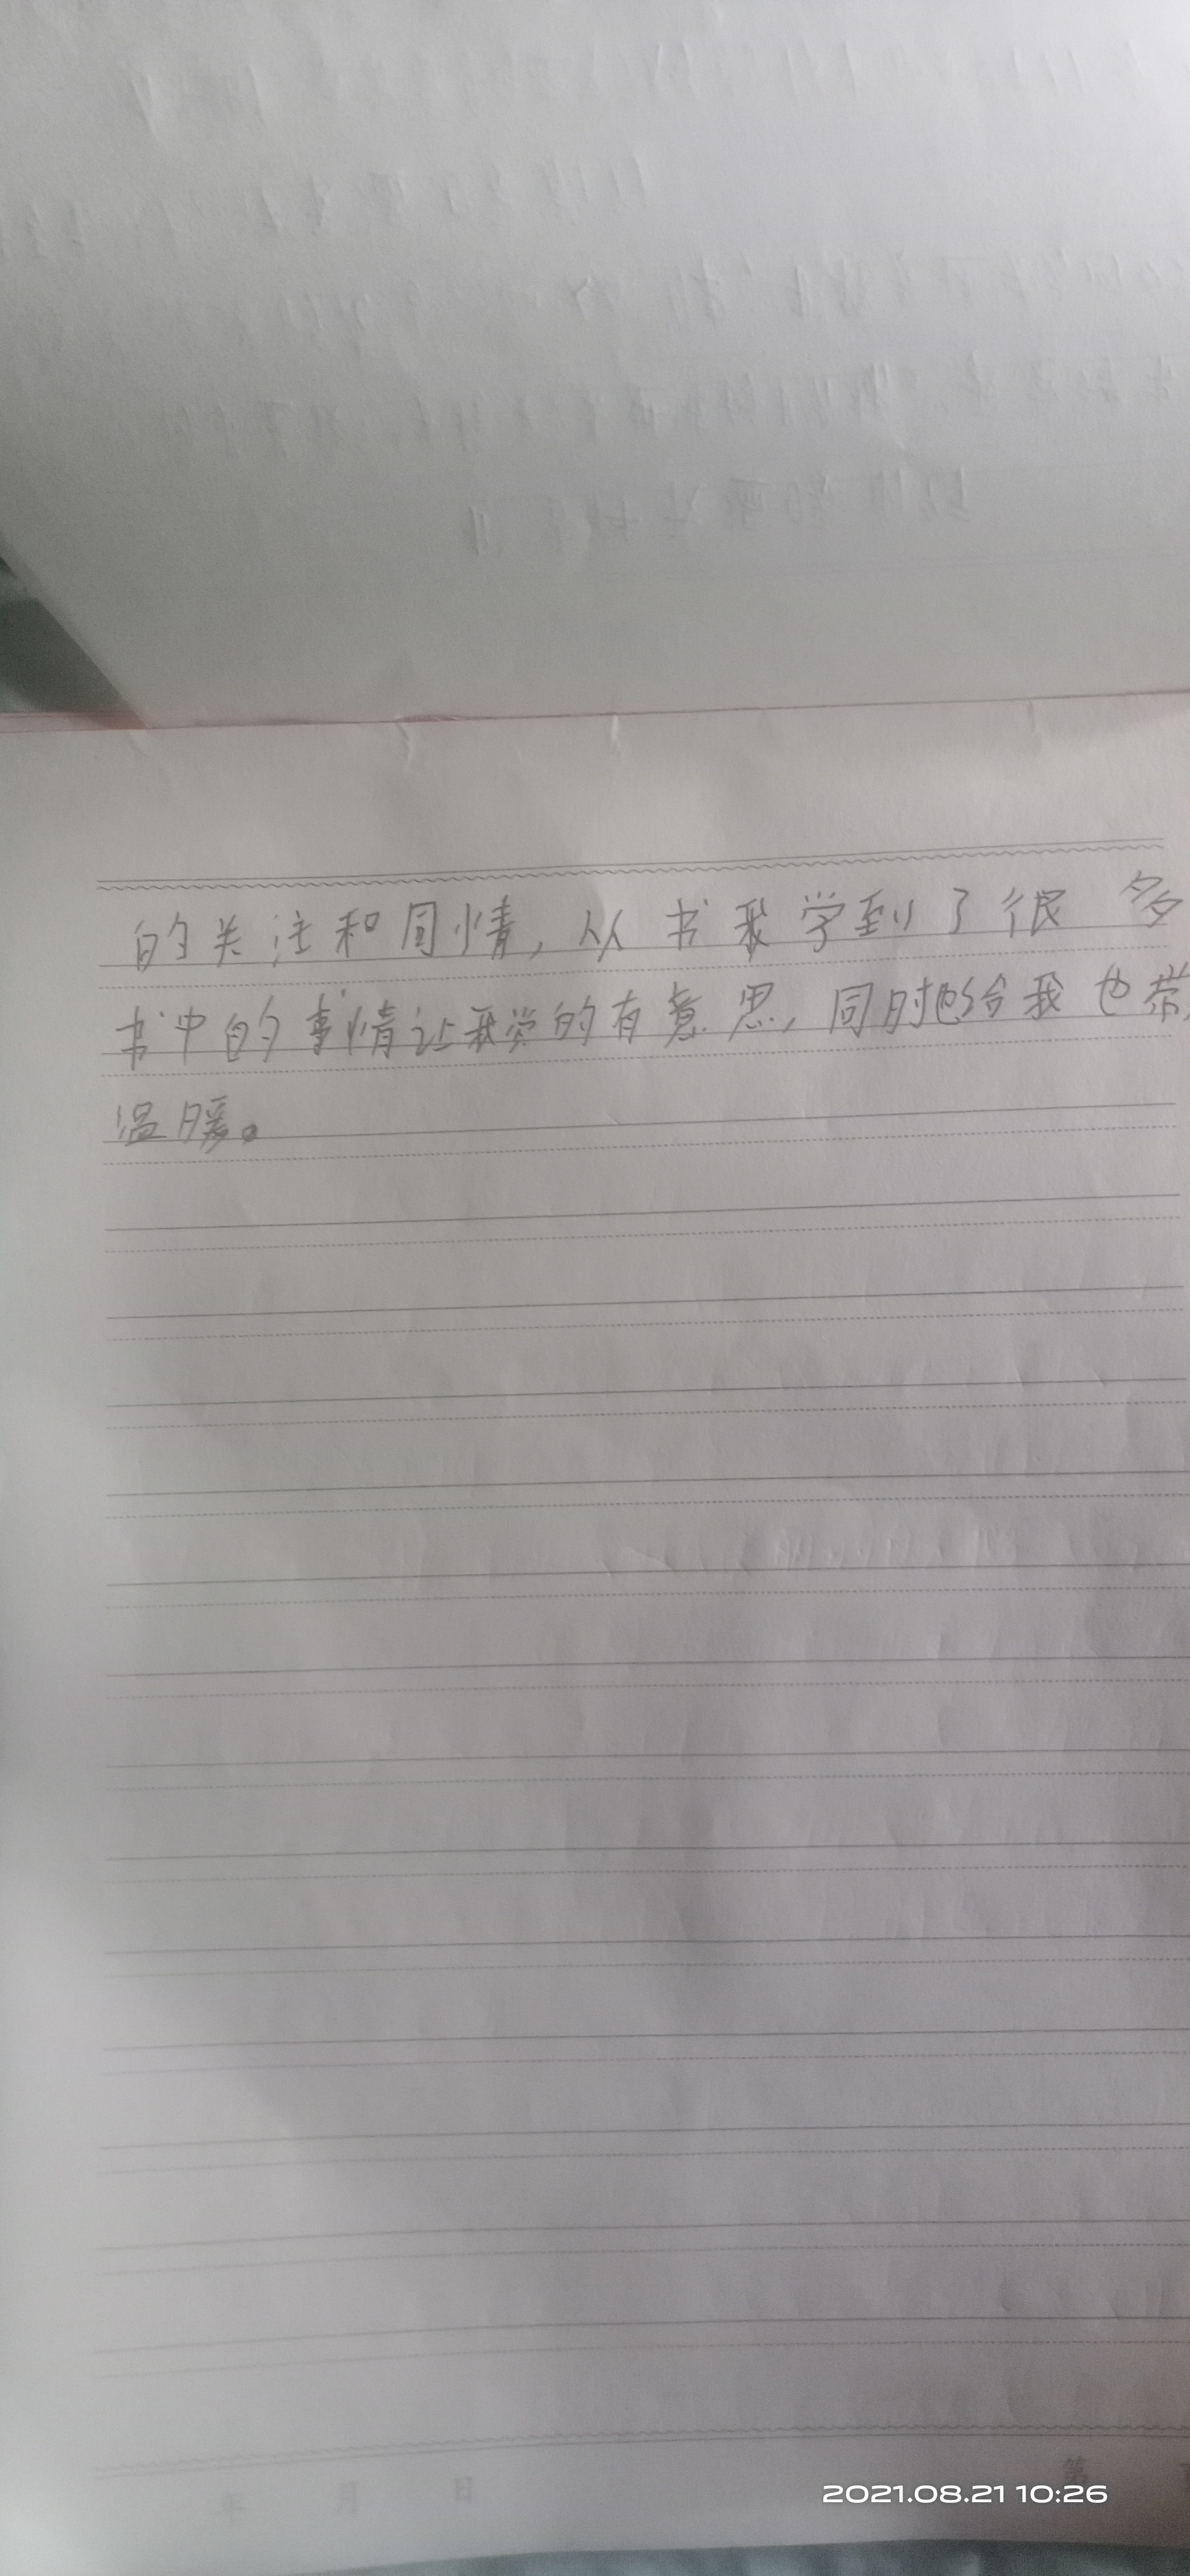 的关注和同情，从书我学到了很 多
书中的事情让我觉的有意思，同时也给我也带
温暖。
年 月 日
第
2021.08.21 10:26